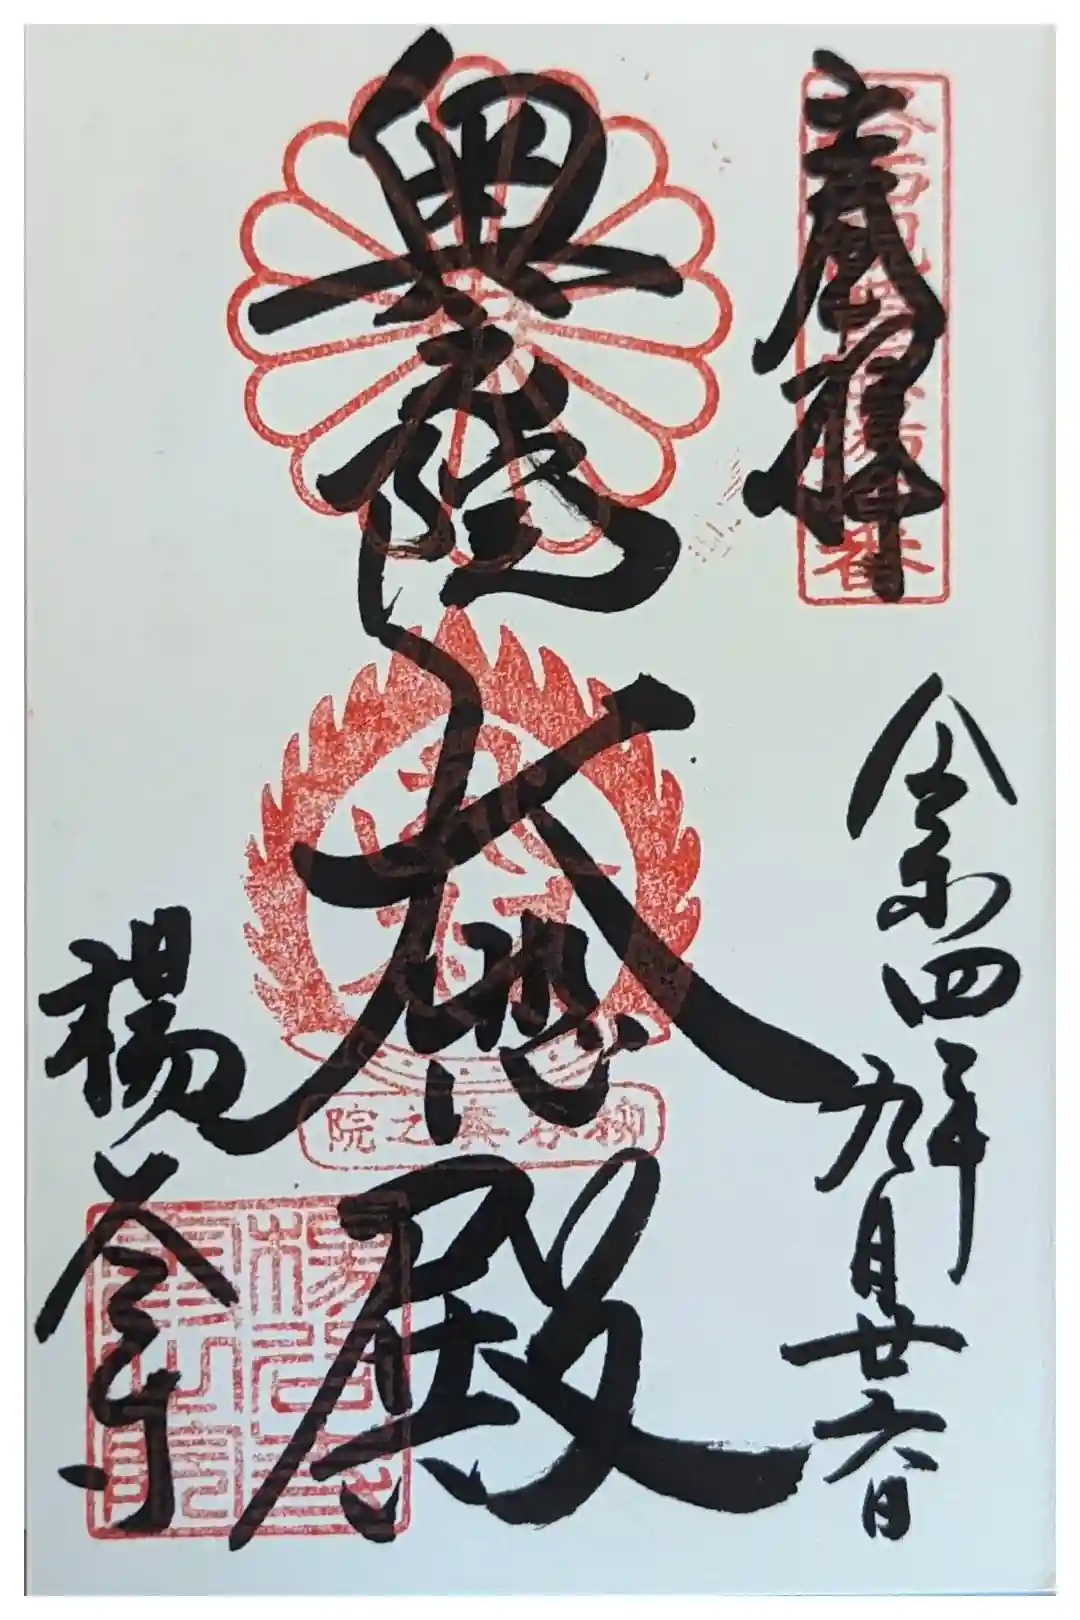 奉拝
令和四年九月廿六日
奥之院
大悲殿
柳谷奥之院
楊谷寺